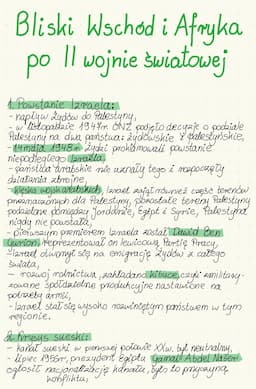 Bliski Wschód i Afryka
po II wojnie światowej
1. Powstanie Izraela:
- napływ Żydów do Palestyny,
- w listopadzie 1947r ONZ podjęło decyzję o podziale
Palestyny na dwa państwa: żydowskie i palestyńskie,
- 14 maja 1948r Żydzi proklamowali powstanie
niepodległego Izraela,
- państwa arabskie nie uznały tego i rozpoczęły
działania zbrojne,
- klęska wojsk arabskich, Izrael zajął również część terenów
przeznaczonych dla Palestyny, pozostałe tereny Palestyny
podzielone pomiędzy Jordanię, Egipt i Syrię, Palestyna
nigdy nie powstała,
- pierwszym premierem Izraela został Dawid Ben
Gurion, reprezentował on lewicową Partię Pracy,
- Izrael otworzył się na emigrację Żydów z całego
świata,
- rozwój rolnictwa, zakładano kibuce, czyli zmilitary-
zowane spółdzielnie produkcyjne nastawione na
potrzeby armii,
- Izrael stał się wysoko rozwiniętym państwem w tym
regionie.
2. Kryzys sueski:
- kanał sueski w pierwszej połowie XXw. był neutralny,
- lipiec 1956r, prezydent Egiptu Gamal Abdel Naser
ogłosił nacjonalizację kanału, było to przyczyną
konfliktu,